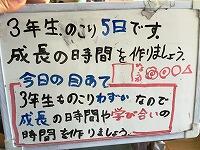 3年生、のこり5日です。
成長の時間を作りましょう。
今日の目あて
3年生ものこりわずかなので
成長の時間や学び合いの
時間を作りましょう。